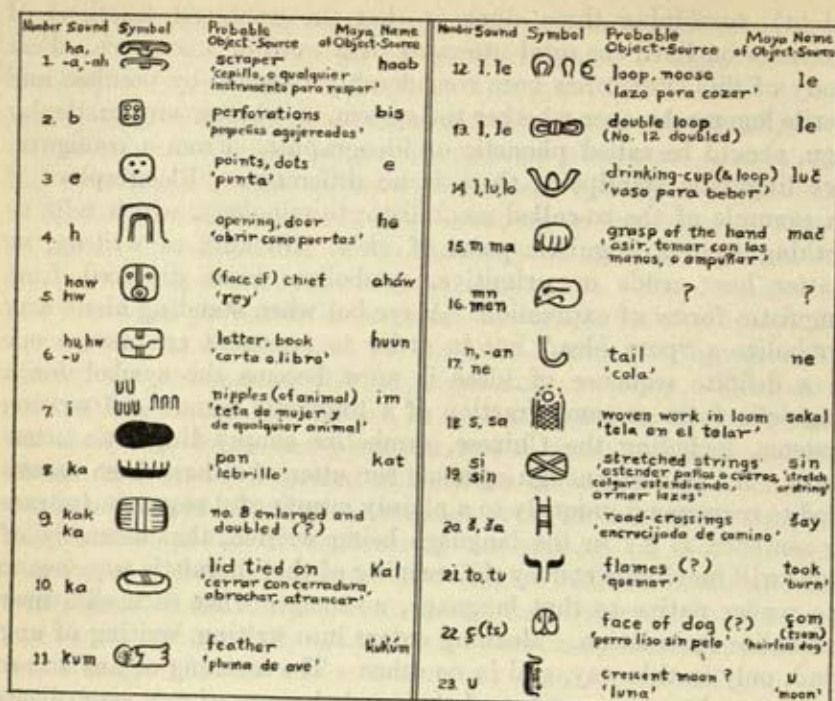 Number Sound Symbol Probable Object-Source Maya Name of Object-Source
1. ha, -a, -ah scraper haab
'cepillo, o qualquier
instrumento para raspar'
2. b perforations bis
'pequeños agujereados'
3. e points, dots e
'punta'
4. h opening, door ha
'abrir como puertas'
5. haw hw (face of) chief aháw
'rey'
6. hu, hw -u letter, book huun
'carta o libro'
7. i nipples (of animal) im
'teta de mujer y
de qualquier animal'
8. ka pan kat
'lebrillo'
9. kak ka no. 8 enlarged and
doubled (?)
10. ka lid tied on Kal
'cerrar con cerradura,
abrochar, atrancar'
11. kum feather KuKum
'pluma de ave'
Number Sound Symbol Probable Object-Source Maya Name of Object-Source
12. l, le loop, noose le
'lazo para cazar'
13. l, le double loop le
(No. 12 doubled)
14. l, lu, lo drinking-cup (& loop) luč
'vaso para beber'
15. m ma grasp of the hand mač
'asir, tomar con las
manos, o ampuñar'
16. mn men ? ?
17. n, -an ne tail ne
'cola'
18. s, sa woven work in loom sakal
'tela en el telar'
19. si sin stretched strings sin
'estender paños o cueros, 'stretch
colgar estendiendo, or string'
armar lazos'
20. š, ša road-crossings šay
'encrucijada de camino'
21. to, tu flames (?) took
'quemar' 'burn'
22. ȼ (ts) face of dog (?) ȼom (tsom)
'perro liso sin pelo' 'hairless dog'
23. u crescent moon ? u
'luna' 'moon'